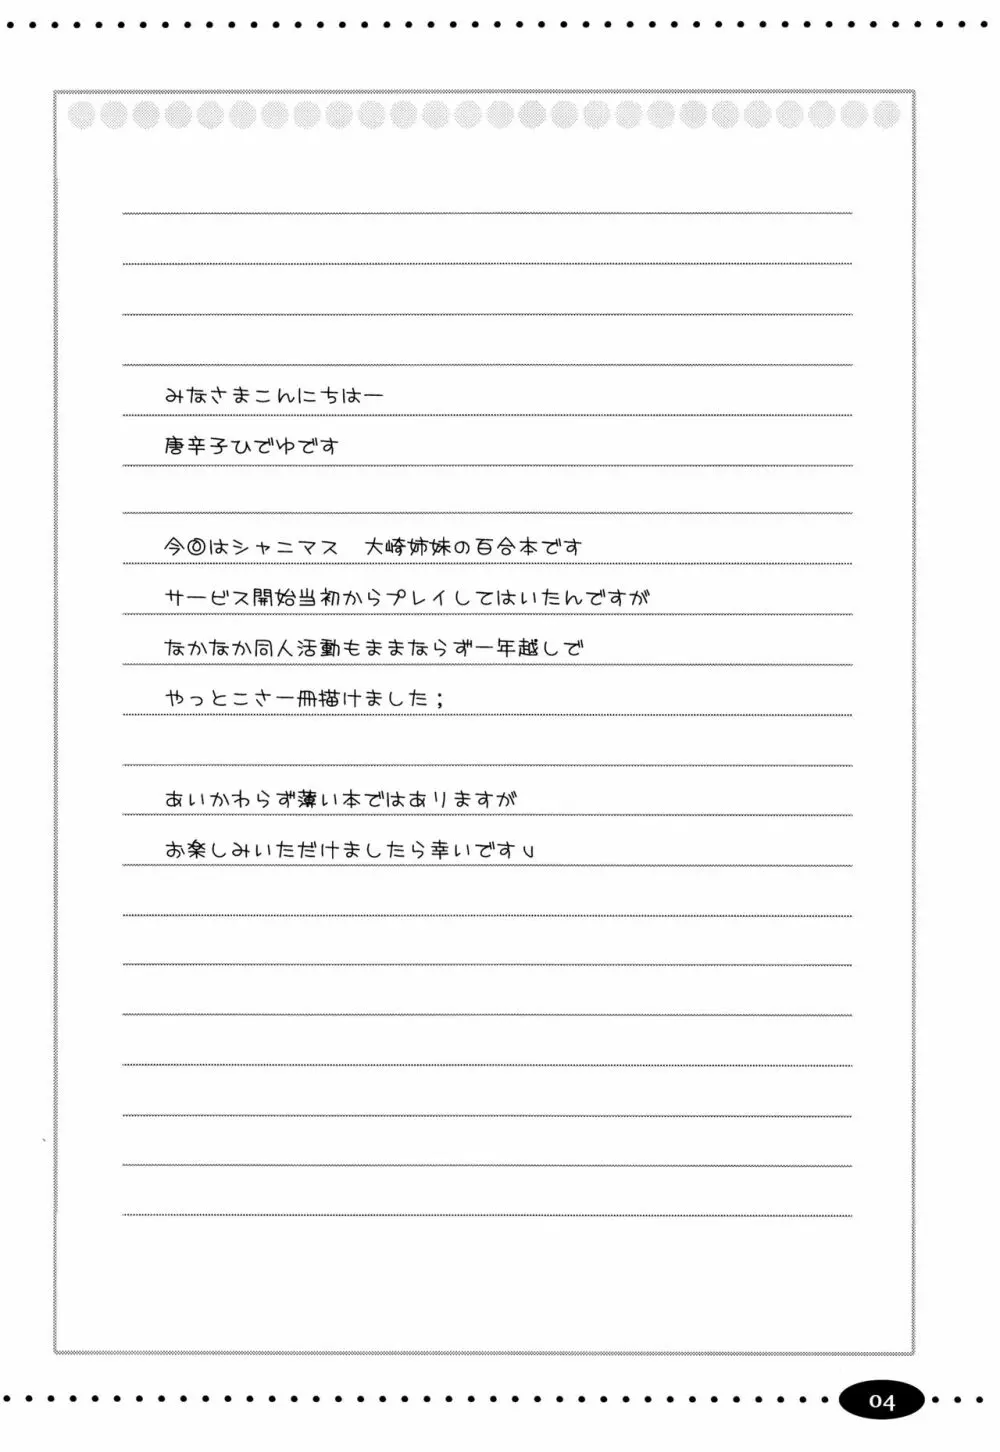 みなさまこんにちはー
唐辛子ひでゆです
今回はシャニマス　大崎姉妹の百合本です
サービス開始当初からプレイしてはいたんですが
なかなか同人活動もままならず一年越しで
やっとこさ一冊描けました；
あいかわらず薄い本ではありますが
お楽しみいただけましたら幸いですν
04